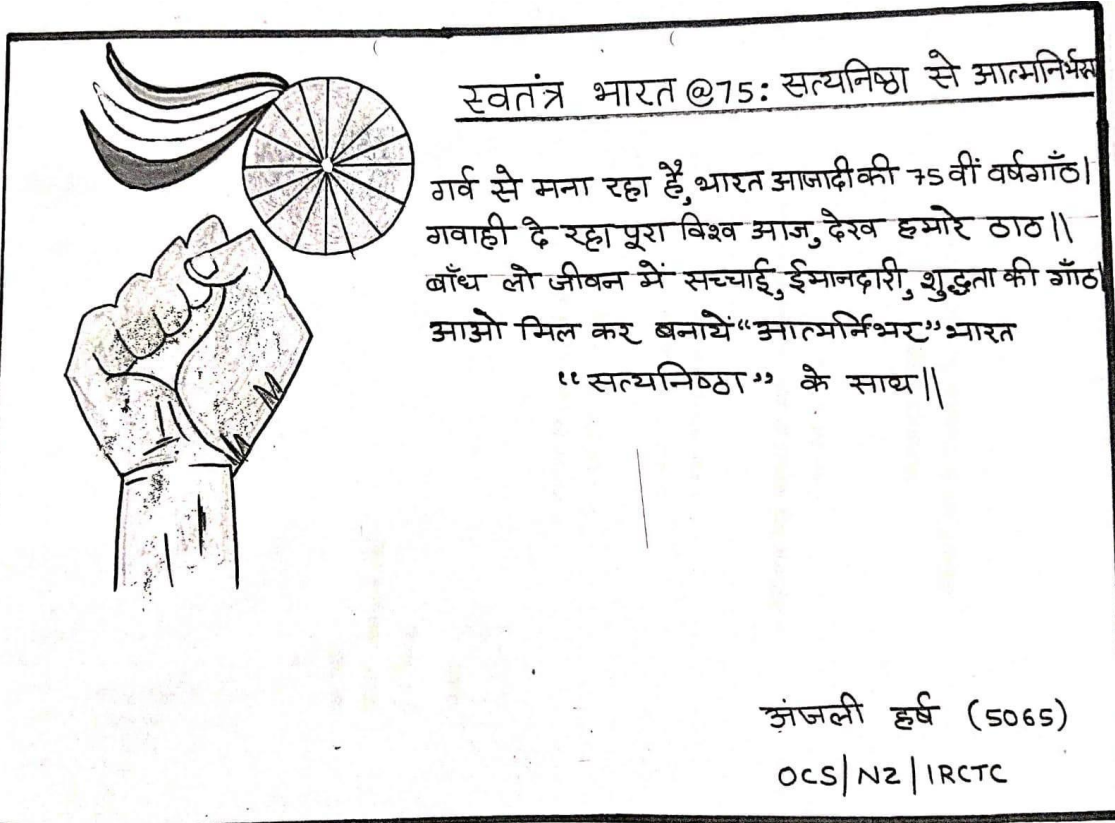 स्वतंत्र भारत @75: सत्यनिष्ठा से आत्मनिर्भर
गर्व से मना रहा है, भारत आजादी की 75 वीं वर्षगाँठ।
गवाही दे रहा पूरा विश्व आज, देख हमारे ठाठ॥
बाँध लो जीवन में सच्चाई, ईमानदारी, शुद्धता की गाँठ।
आओ मिल कर बनायें "आत्मर्निभर" भारत
"सत्यनिष्ठा" के साथ॥
अंजली हर्ष (5065)
OCS|NZ|IRCTC